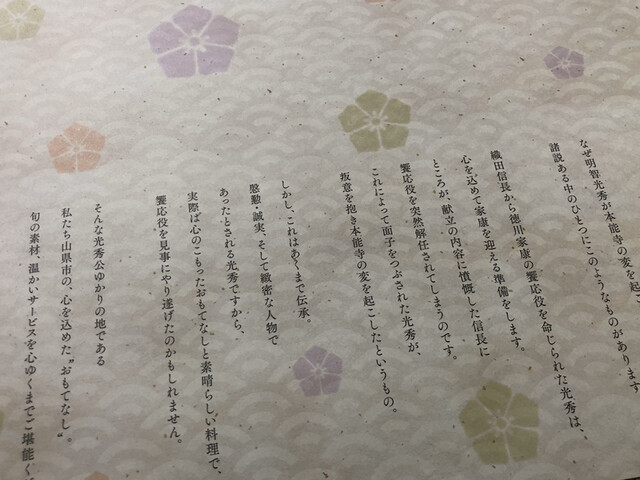 なぜ明智光秀が本能寺の変を起こ
諸説ある中のひとつにこのようなものがあります
織田信長から徳川家康の饗応役を命じられた光秀は、
心を込めて家康を迎える準備をします。
ところが、献立の内容に憤慨した信長に
饗応役を突然解任されてしまうのです。
これによって面子をつぶされた光秀が、
叛意を抱き本能寺の変を起こしたというもの。
しかし、これはあくまで伝承。
慇懃・誠実、そして緻密な人物で
あったとされる光秀ですから、
実際は心のこもったおもてなしと素晴らしい料理で、
饗応役を見事にやり遂げたのかもしれません。
そんな光秀公ゆかりの地である
私たち山県市の、心を込めた〝おもてなし〟。
旬の素材、温かいサービスを心ゆくまでご堪能く